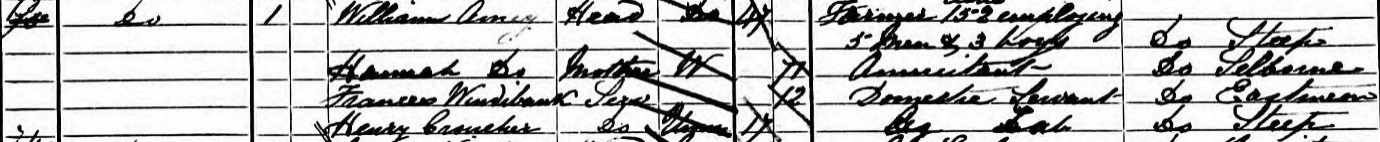 Do 1 William Amey Head Do 47 Farmer 152 employing
5 Men & 3 boys Do Steep
Hannah Do Mother W 77 Annuitant Do Selborne
Frances Windibank Serv 12 Domestic Servant Do Eastmeon
Henry Croucher Do Unm 17 Ag Lab Do Steep